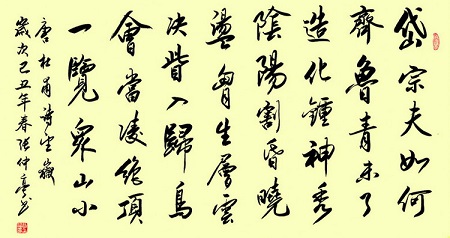 岱宗夫如何
齊魯青未了
造化鍾神秀
陰陽割昏曉
盪胷生層雲
決眥入歸鳥
會當凌絕頂
一覽眾山小
唐杜甫詩望嶽
歲次己丑年春張仲亭書